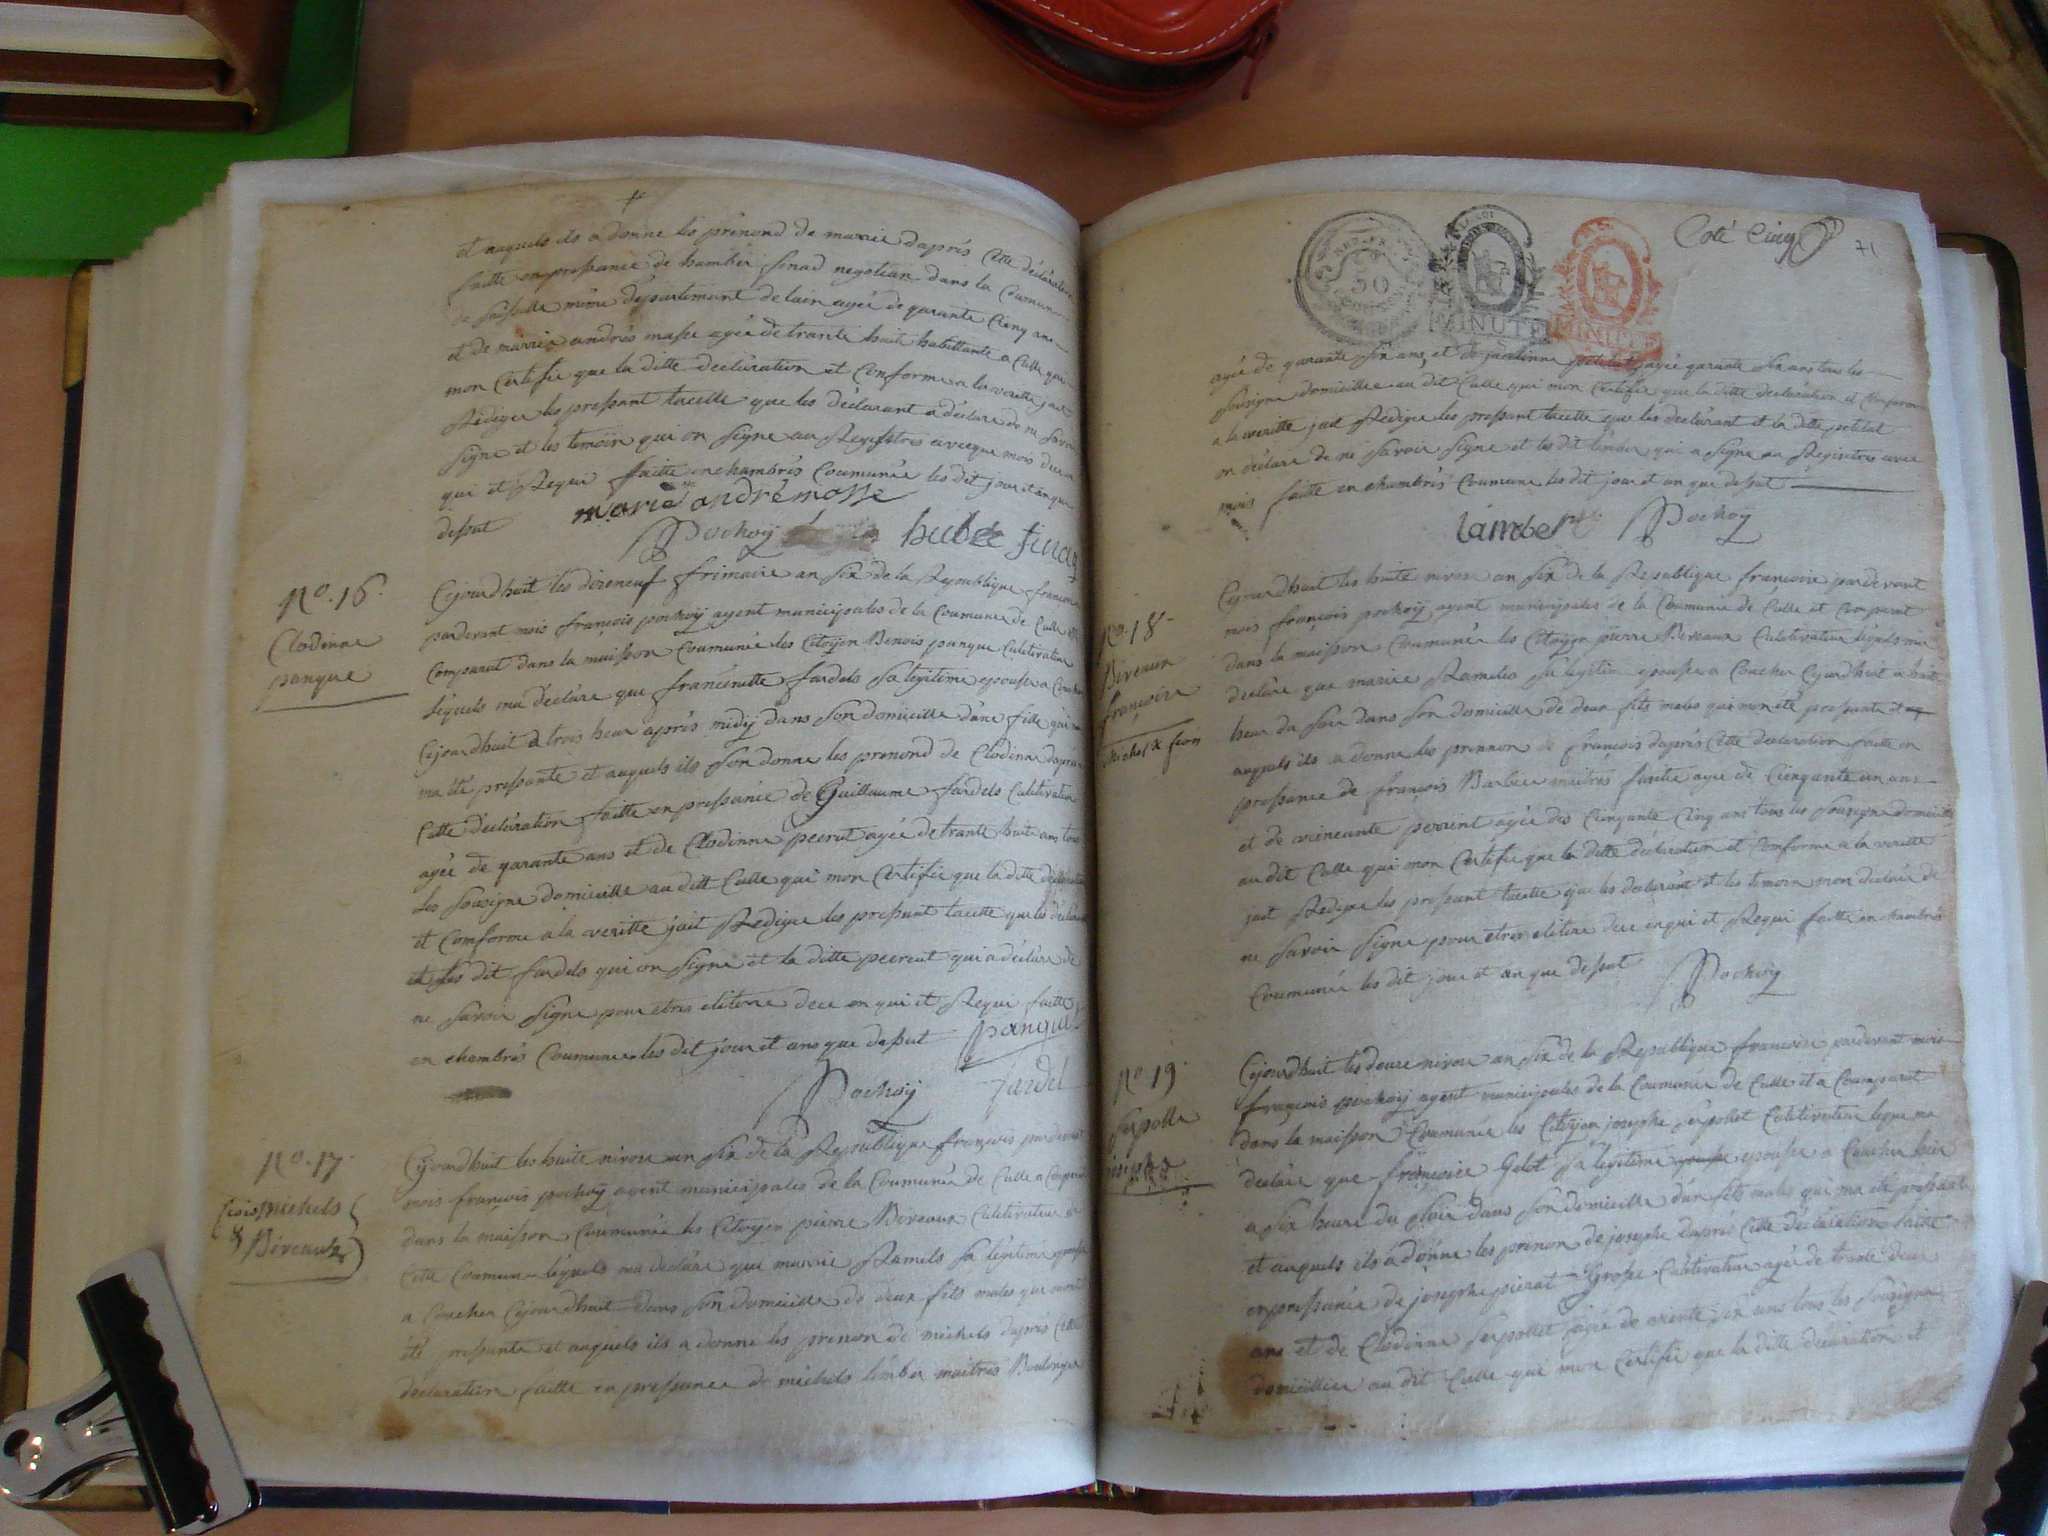 et auquels ils a donne les prénond de marie daprés Cette déclaration
faitte en pressance de humber finad negotian dans la Coumune
de même département de lain agée de quarante Cienq ans
et de marie andrés masse agée de trante huit habittante a Culle qui
mon Certifie que la ditte declaration et Conforme a la veritte jait
Rediger les pressant tacette que les déclarant a déclare de ne Savoir
Signe et les temoin qui on Signe au Registres avecque mois
qui et Requi faitte en chambrés Coumunée les dit jour et an que
dessut
marie andré masse
Pochoÿ
hubé finaq
No. 16.
Clodinne
panque
Cejourdhuit les dixneuf frimaire an Six de la Republique francoise
pardevant mois françois pochoÿ agent municipales de la Coumune de Culle et
Comparut dans la maisson Coumunée les Citoÿen Benois panque Culitivateur
léquels ma déclare que francinette fardels Sa légitime epousse a Couchee
Cejourdhuit a trois heur aprés midÿ dans Son domicille dune fille qui
ma été pressante et auquels ils Son donne les prenond de Clodinne daprés
Cette déclaration faitte en pressance de Guillaume fardels Culitivateur
agée de quarante ans et de Clodinne peerut agée de trante huit ans tous
les Sousigne domicille au dit Culle qui mon Certifie que la ditte déclaration
et Conforme a la veritte jait Redige les pressant tacette que les déclarant
et les dit fardels qui on Signe et la ditte peereut qui a déclare de
ne Savoir Signe pour etres elitere dece en qui et Requi faitte
en chambrés Coumune les dit jour et ans que dessut
panque
Pochoÿ
fardel
No. 17.
Michels
Béreaux
Cejourdhuit les huite nivose an Six de la Republique françois pardevant
mois françois pochoÿ agent municipales de la Coumune de Culle a Comparut
dans la maisson Coumunée les Citoÿen pierre Béreaux Culitivateur de
Cette Coumune lequels ma déclare que marie Ramels Sa légitime epousse
a Couchee Cejourdhuit dans Son domicille de deux fils males qui mont
été pressante et auquels ils a donne les prenon de michels daprés Cette
declaration faitte en pressance de michels limber maitres Boulonger
Coté Cinq
71
50
MINUTE
MINUTE
agée de quarante Six ans et de jeanne petitat agée quarante Six ans tous les
Sousigne domicille au dit Culle qui mon Certifie que la ditte déclaration et Conforme
a la veritte jait Rediger les pressant tacette que les declarant et la ditte petitat
on déclare de ne Savoir Signe et les dit témoin qui a Signe au Registres avec
mois faitte en chambrés Coumune les dit jour et an que dessut
lamber
Pochoÿ
No. 18.
Béreaux
françois
Cejourdhuit les huite nivose an Six de la Republique françoise pardevant
mois françois pochoÿ agent municipales de la Coumune de Culle et Comparut
dans la maisson Coumunée les Citoÿen pierre Béreaux Culitivateur léquels ma
declare que marie Ramels Sa légitim epousse a Couchee Cejourdhuit a huit
heur du Soir dans Son domicille de deux fils males qui mon été pressante et
auquels ils a donne les prennon de françois daprés Cette declaration faitte en
pressance de françois Barbier maitres agée de Cienquante un ans
et de vincante perrint agée des Cienquante Cinq ans tous les Sousigne domicille
au dit Culle qui mon Certifie que la ditte déclaration et Conforme a la veritte
jait Redige les pressant tacette que les declarant et les temoin mon declare de
ne Savoir Signe pour etres elitere dece en qui et Requi faitte en chambrés
Coumunée les dit jour et an que dessut
Pochoÿ
No. 19.
Serpolle
josephe
Cejourdhuit les douze nivose an Six de la Republique francoise pardevant mois
françois pochoÿ agent municipales de la Coumune de Culle et a Coumparut
dans la maisson Coumunée les Citoÿen josephe Serpollet Culitivateur leque ma
declare que françoise Gelot Sa légitime epousse a Couchee hier
a Six heure du Soir dans Son domicille d'un fils males qui ma été pressante
et auquels ils a donne les prenon de josephe daprés Cette déclaration faitte
en pressance de josephe pierat Grosse Culitivateur agée de trante deux
ans et de Clodinne Serpollet agée de vinte Six ans tous les Sousigne
domicillier au dit Culle qui mon Certifie que la ditte declaration et